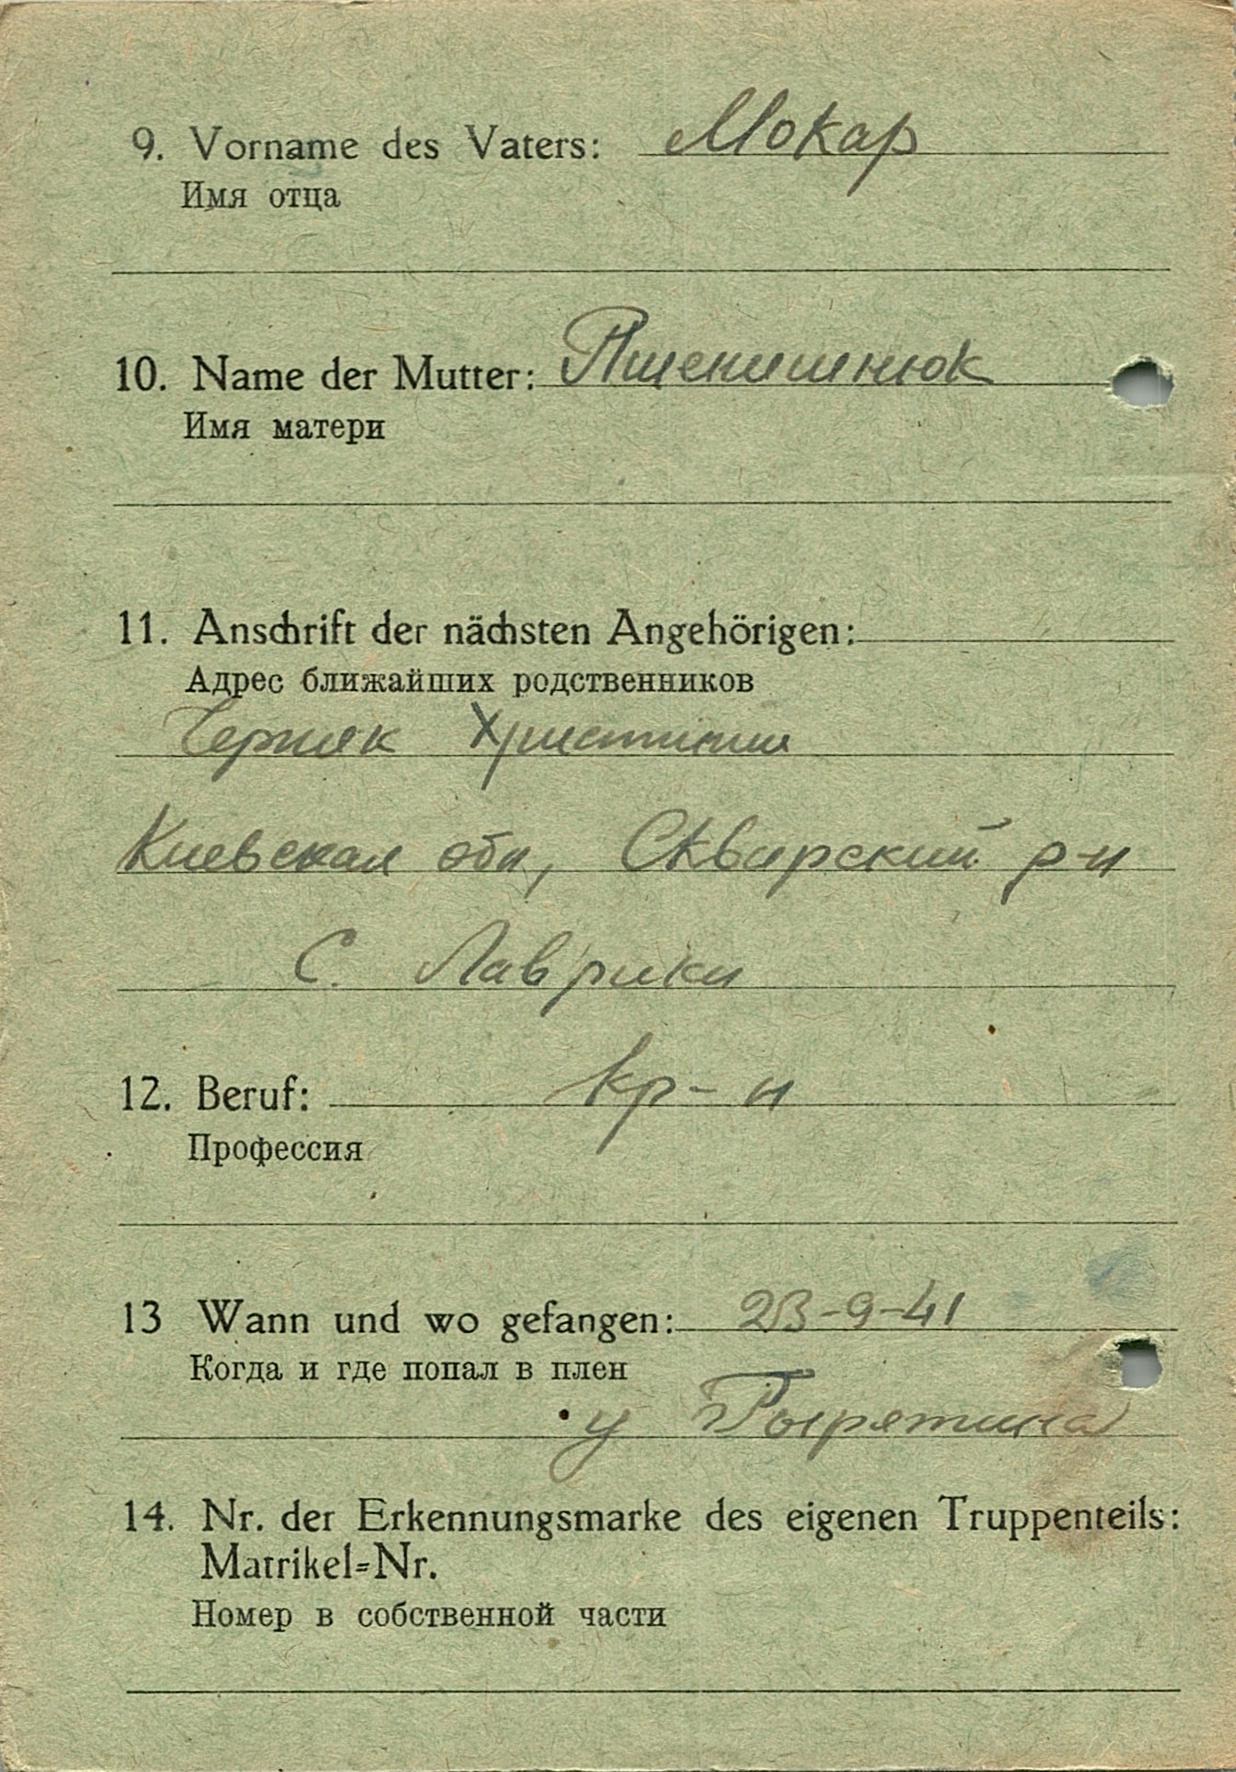 9. Vorname des Vaters: Мокар
Имя отца
10. Name der Mutter: Пшенишнюк
Имя матери
11. Anschrift der nächsten Angehörigen:
Адрес ближайших родственников
Черняк Христиния
Киевская обл, Сквирский р-н
С. Лаврики
12. Beruf: кр-н
Профессия
13 Wann und wo gefangen: 23-9-41
Когда и где попал в плен
у Пырятина
14. Nr. der Erkennungsmarke des eigenen Truppenteils:
Matrikel=Nr.
Номер в собственной части